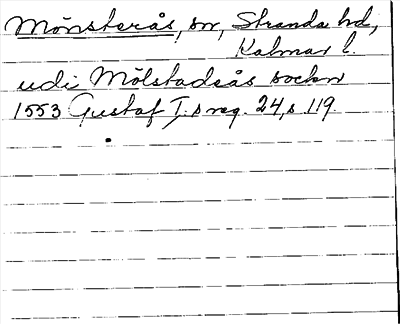 Mönsterås, sn, Stranda hd,
Kalmar l.
udi Mölstadsås sockn
1553 Gustaf I:s reg. 24, s. 119.